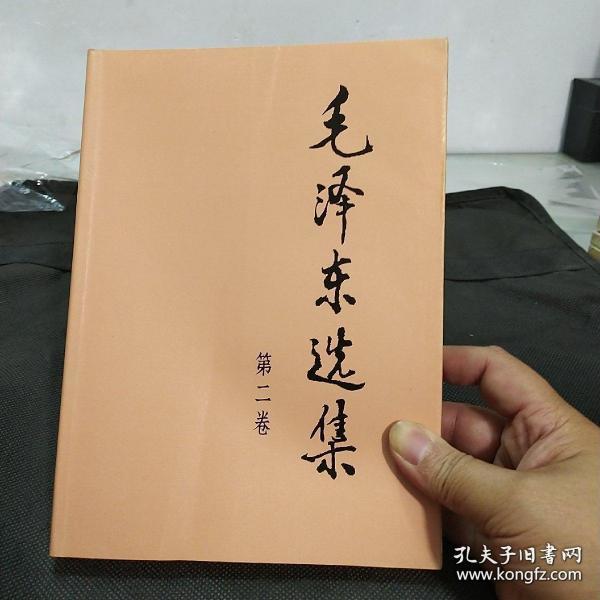 毛泽东选集
第二卷
孔夫子旧書网
www.kongfz.com